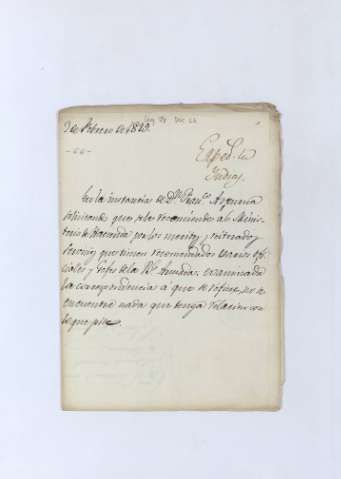 3 de Febrero de 1829.
Exped.te
Indias
En la instancia de Dn. Franco. Azguria
solicitando que se le recomiende al Minis
terio de Hacienda por los meritos y
servicios que tienen recomendados varios ofi
ciales y Gefes de la Rl. Armada: examinada
la correspondencia a que se refiere, no se
encuentra nada que tenga relacion con
lo que pide